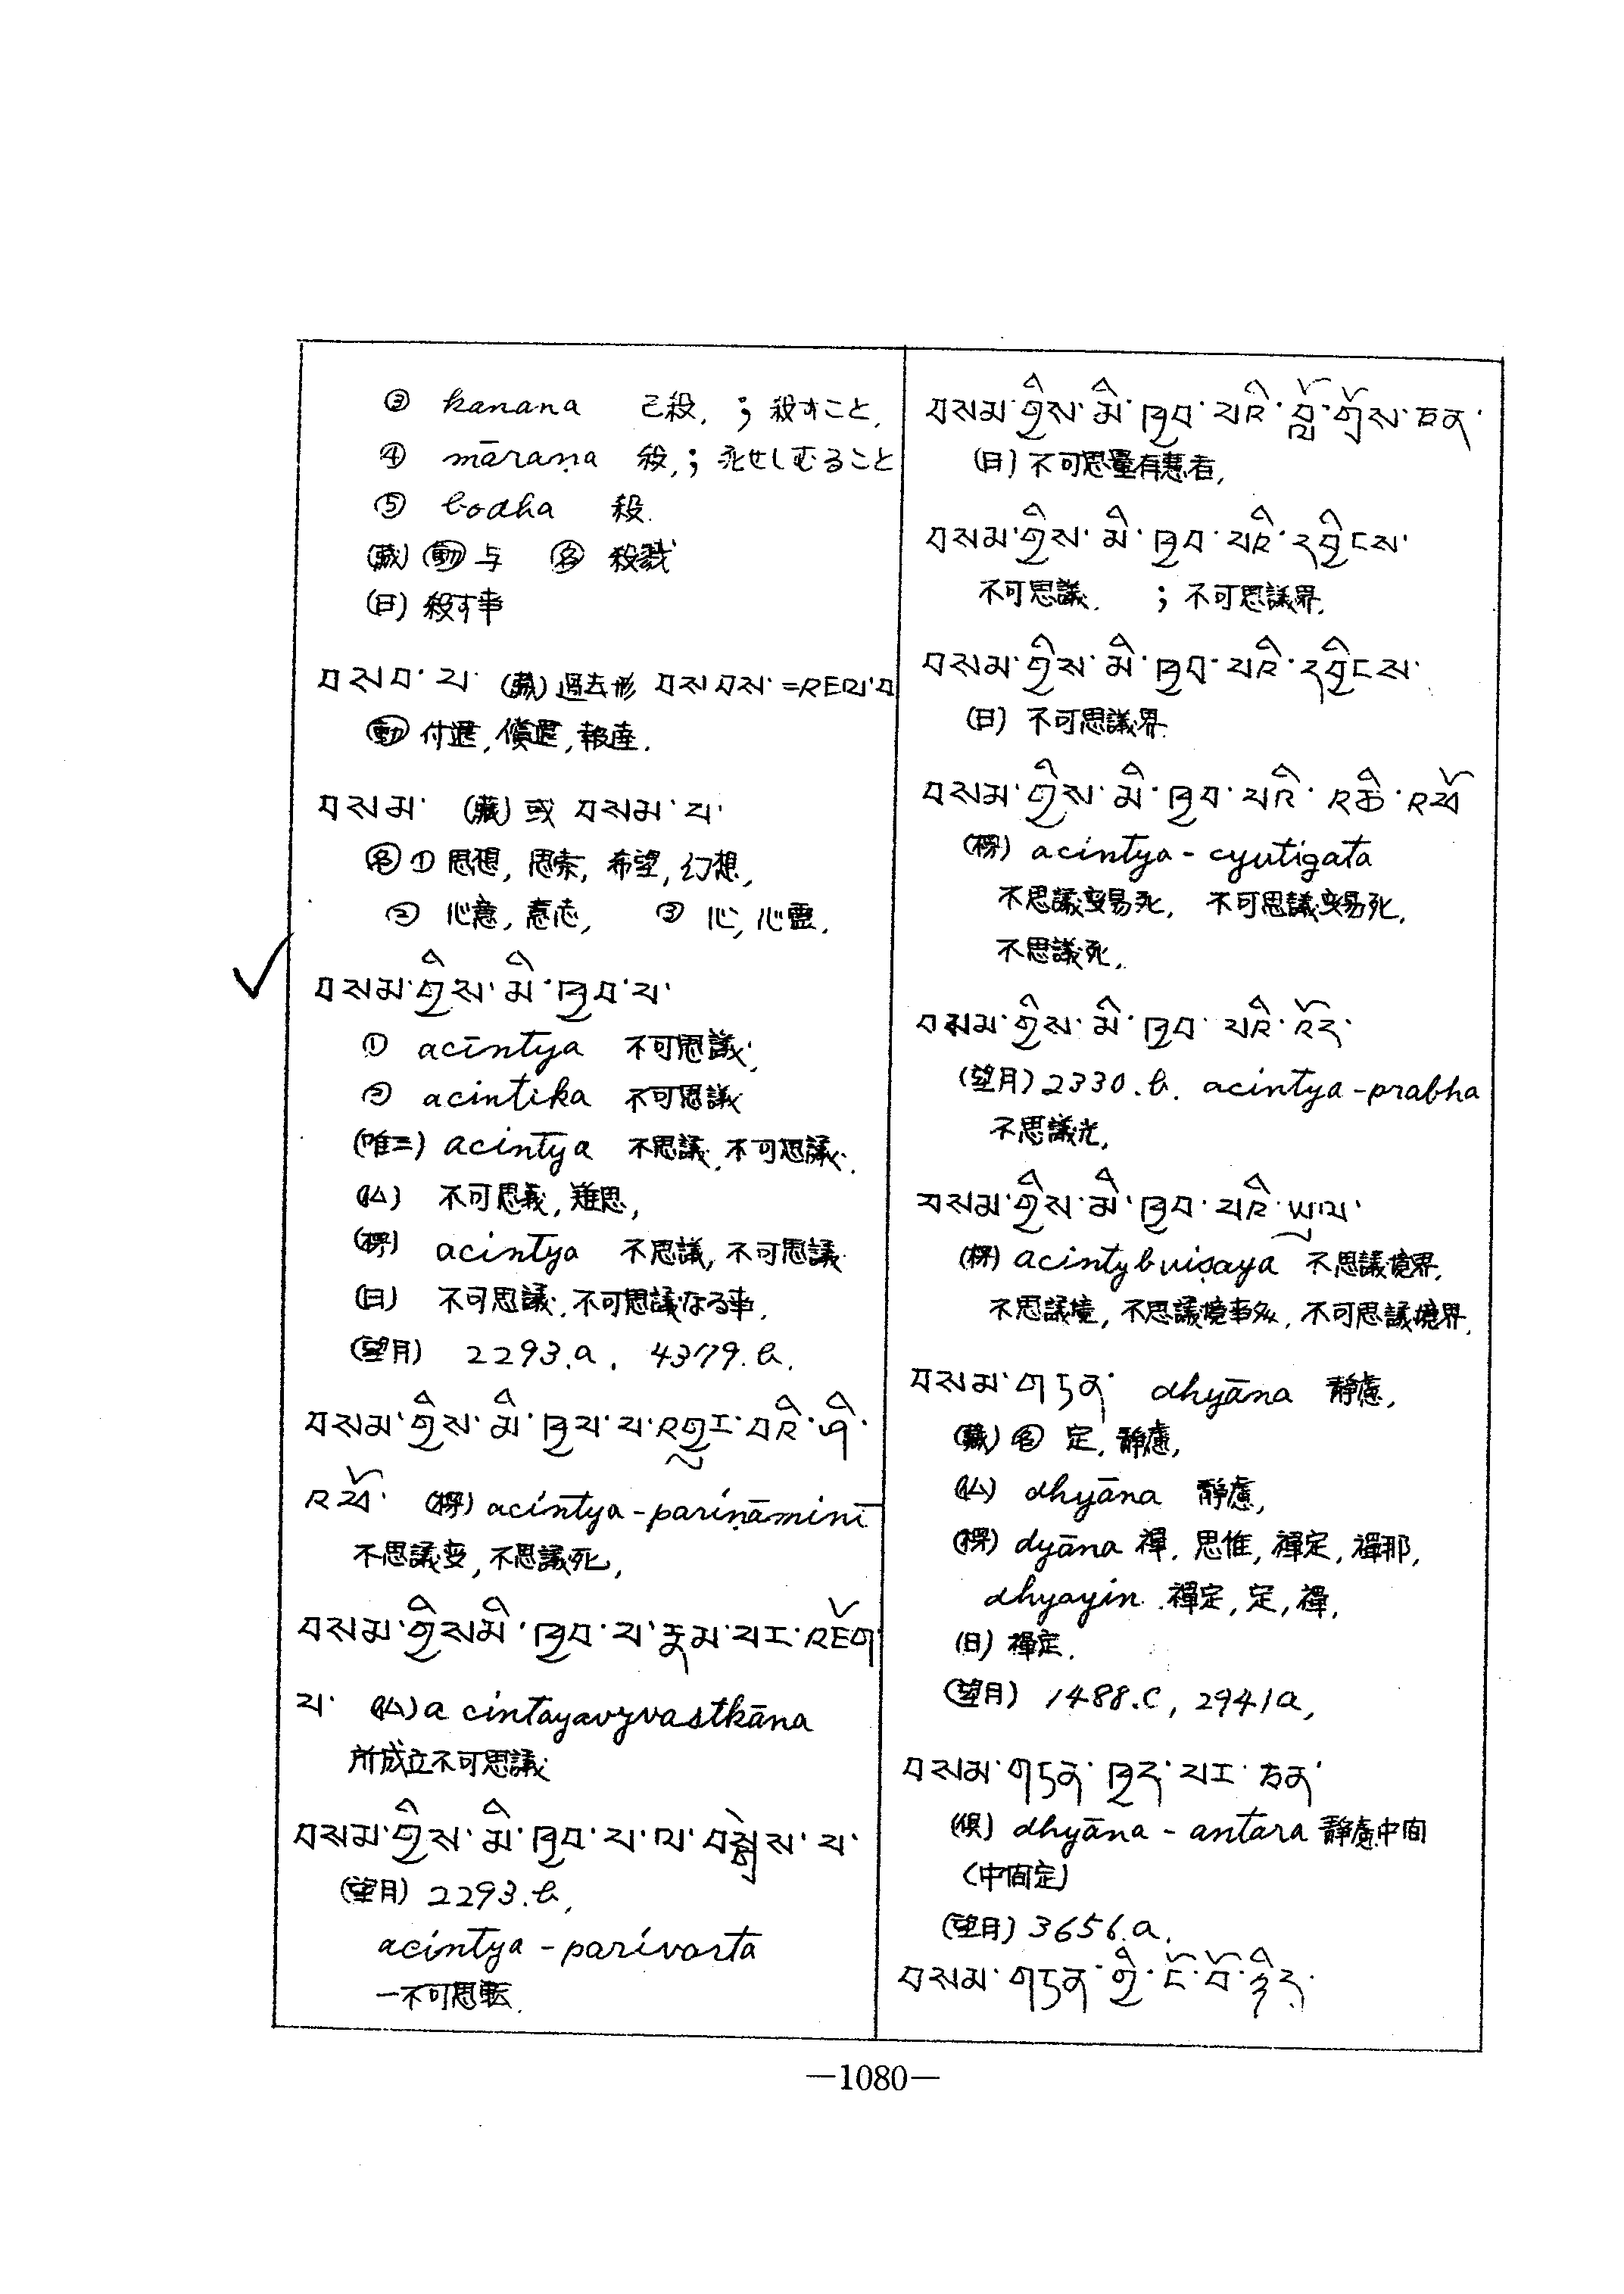 ③ hanana 已殺, ; 殺すこと,
④ māraṇa 殺, ; 死せしむること
⑤ bodha 殺.
(藏) 動 与 名 殺戮
(日) 殺す事
བསབ་པ་ (藏) 過去形 བསབས་ =འཇལ་བ
動 付還, 償還, 報.
བསམ་ (藏) 或 བསམ་པ་
名 ① 思想, 思索, 希望, 幻想,
② 心意, 意志, ③ 心, 心霊,
བསམ་གྱིས་མི་ཁྱབ་པ་
① acintya 不可思議,
② acintika 不可思議
(唯三) acintya 不思議, 不可思議,
(仏) 不可思義, 難思,
(楞) acintya 不思議, 不可思議
(日) 不可思議, 不可思議なる事,
(望月) 2293.a, 4379.b,
བསམ་གྱིས་མི་ཁྱབ་པ་འགྱུར་བའི་ཤི་
འཕོ་ (楞) acintya-pariṇāminī
不思議変, 不思議死,
བསམ་གྱིས་མི་ཁྱབ་པ་རྣམ་པར་འཇོག་
པ་ (仏) a cintayavyvasthāna
所成立不可思議
བསམ་གྱིས་མི་ཁྱབ་པ་ལ་བསྒྲེས་པ་
(望月) 2293.b,
acintya-parivarta
一不可思転,
བསམ་གྱིས་མི་ཁྱབ་པའི་བློ་གྲོས་ཅན་
(日) 不可思量有慧者,
བསམ་གྱིས་མི་ཁྱབ་པའི་དབྱིངས་
不可思議, ; 不可思議界,
བསམ་གྱིས་མི་ཁྱབ་པའི་དབྱིངས་
(日) 不可思議界
བསམ་གྱིས་མི་ཁྱབ་པའི་འཆི་འཕོ
(楞) acintya-cyutigata
不思議変易死, 不可思議変易死,
不思議死,
བསམ་གྱིས་མི་ཁྱབ་པའི་འོད་
(望月) 2330.b. acintya-prabha
不思議光,
བསམ་གྱིས་མི་ཁྱབ་པའི་ཡུལ་
(楞) acintybviṣaya 不思議境界,
不思議境, 不思議境事, 不可思議境界,
བསམ་གཏན་ dhyāna 静慮,
(藏) 名 定, 静慮,
(仏) dhyāna 静慮,
(楞) dyāna 禅, 思惟, 禅定, 禅那,
dhyayin 禅定, 定, 禅,
(日) 禅定.
(望月) 1488.C, 2941a,
བསམ་གཏན་ཁྱད་པར་ཅན་
(倶) dhyāna-antara 静慮中間
(中間定)
(望月) 3656.a,
བསམ་གཏན་གྱི་ངོ་བོ་ཉིད་
—1080—